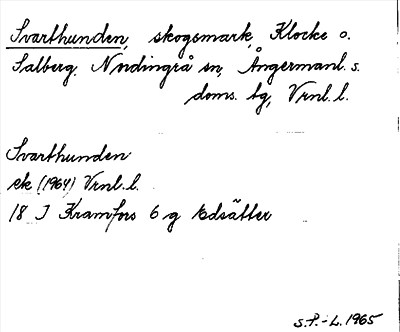 Svarthunden, skogsmark, Klocke o.
Salberg, Nordingrå sn, Ångermanl. s.
doms. tg, Vrnl. l.
Svarthunden
ek (1964) Vrnl. l.
18 I Kramfors 6 g Edsätter
S.P.-L. 1965